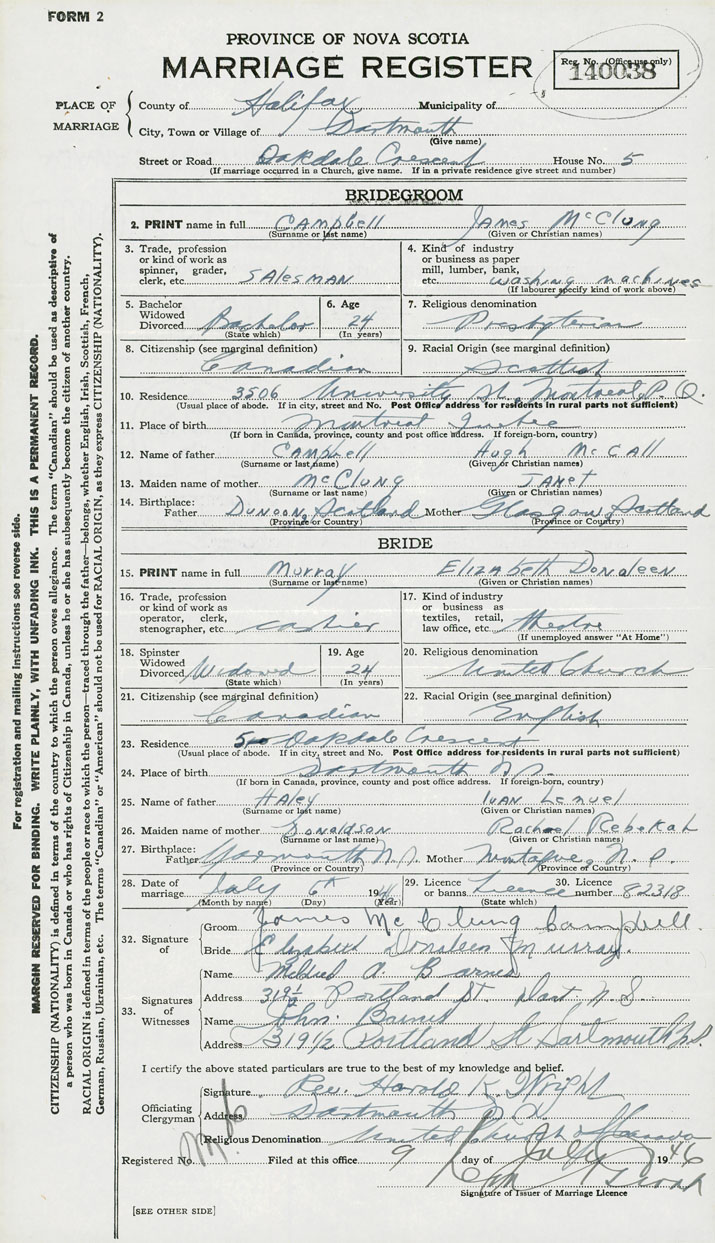 FORM 2
PROVINCE OF NOVA SCOTIA
MARRIAGE REGISTER
Reg. No. (Office use only)
140038
PLACE OF MARRIAGE
County of Halifax Municipality of
City, Town or Village of Dartmouth
(Give name)
Street or Road Oakdale Crescent House No. 5
(If marriage occurred in a Church, give name. If in a private residence give street and number)
BRIDEGROOM
2. PRINT name in full Campbell James McClung
(Surname or last name) (Given or Christian names)
3. Trade, profession or kind of work as spinner, grader, clerk, etc. SALESMAN
4. Kind of industry or business as paper mill, lumber, bank, etc. washing machines
(If labourer specify kind of work above)
5. Bachelor Widowed Divorced Bachelor
(State which)
6. Age 24
(In years)
7. Religious denomination
Presbyterian
8. Citizenship (see marginal definition)
Canadian
9. Racial Origin (see marginal definition)
Scottish
10. Residence 3506 University St. Montreal P.Q.
(Usual place of abode. If in city, street and No. Post Office address for residents in rural parts not sufficient)
11. Place of birth Montreal Quebec
(If born in Canada, province, county and post office address. If foreign-born, country)
12. Name of father Campbell Hugh McCall
(Surname or last name) (Given or Christian names)
13. Maiden name of mother McClung Janet
(Surname or last name) (Given or Christian names)
14. Birthplace: Father Dunoon, Scotland Mother Glasgow, Scotland
(Province or Country) (Province or Country)
BRIDE
15. PRINT name in full Murray Elizabeth Donaleen
(Surname or last name) (Given or Christian names)
16. Trade, profession or kind of work as operator, clerk, stenographer, etc. cashier
17. Kind of industry or business as textiles, retail, law office, etc. theatre
(If unemployed answer "At Home")
18. Spinster Widowed Divorced Widowed
(State which)
19. Age 24
(In years)
20. Religious denomination
United Church
21. Citizenship (see marginal definition)
Canadian
22. Racial Origin (see marginal definition)
English
23. Residence 5 Oakdale Crescent
(Usual place of abode. If in city, street and No. Post Office address for residents in rural parts not sufficient)
24. Place of birth Dartmouth N.S.
(If born in Canada, province, county and post office address. If foreign-born, country)
25. Name of father Haley Ivan Lemuel
(Surname or last name) (Given or Christian names)
26. Maiden name of mother Donaldson Rachael Rebekah
(Surname or last name) (Given or Christian names)
27. Birthplace: Father Yarmouth N.S. Mother N.S.
(Province or Country) (Province or Country)
28. Date of marriage July 6th 1946
(Month by name) (Day) (Year)
29. Licence or banns Licence
(State which)
30. Licence number 82318
32. Signature of
Groom James McClung Campbell.
Bride Elizabeth Donaleen Murray.
33. Signatures of Witnesses
Name Mildred A. Barnes
Address 319½ Portland St. Dart. N.S.
Name John Barnes
Address 319 1/2 Portland St Dartmouth N.S.
I certify the above stated particulars are true to the best of my knowledge and belief.
Officiating Clergyman
Signature Rev. Harold K. Wright
Address Dartmouth
Religious Denomination United Church of Canada
Registered No. Filed at this office 9 day of July 1946
Signature of Issuer of Marriage Licence
[SEE OTHER SIDE]
For registration and mailing instructions see reverse side.
MARGIN RESERVED FOR BINDING. WRITE PLAINLY, WITH UNFADING INK. THIS IS A PERMANENT RECORD.
CITIZENSHIP (NATIONALITY) is defined in terms of the country to which the person owes allegiance. The term "Canadian" should be used as descriptive of
a person who was born in Canada or who has rights of Citizenship in Canada, unless he or she has subsequently become the citizen of another country.
RACIAL ORIGIN is defined in terms of the people or race to which the person—traced through the father—belongs, whether English, Irish, Scottish, French,
German, Russian, Ukrainian, etc. The terms "Canadian" or "American" should not be used for RACIAL ORIGIN, as they express CITIZENSHIP (NATIONALITY).